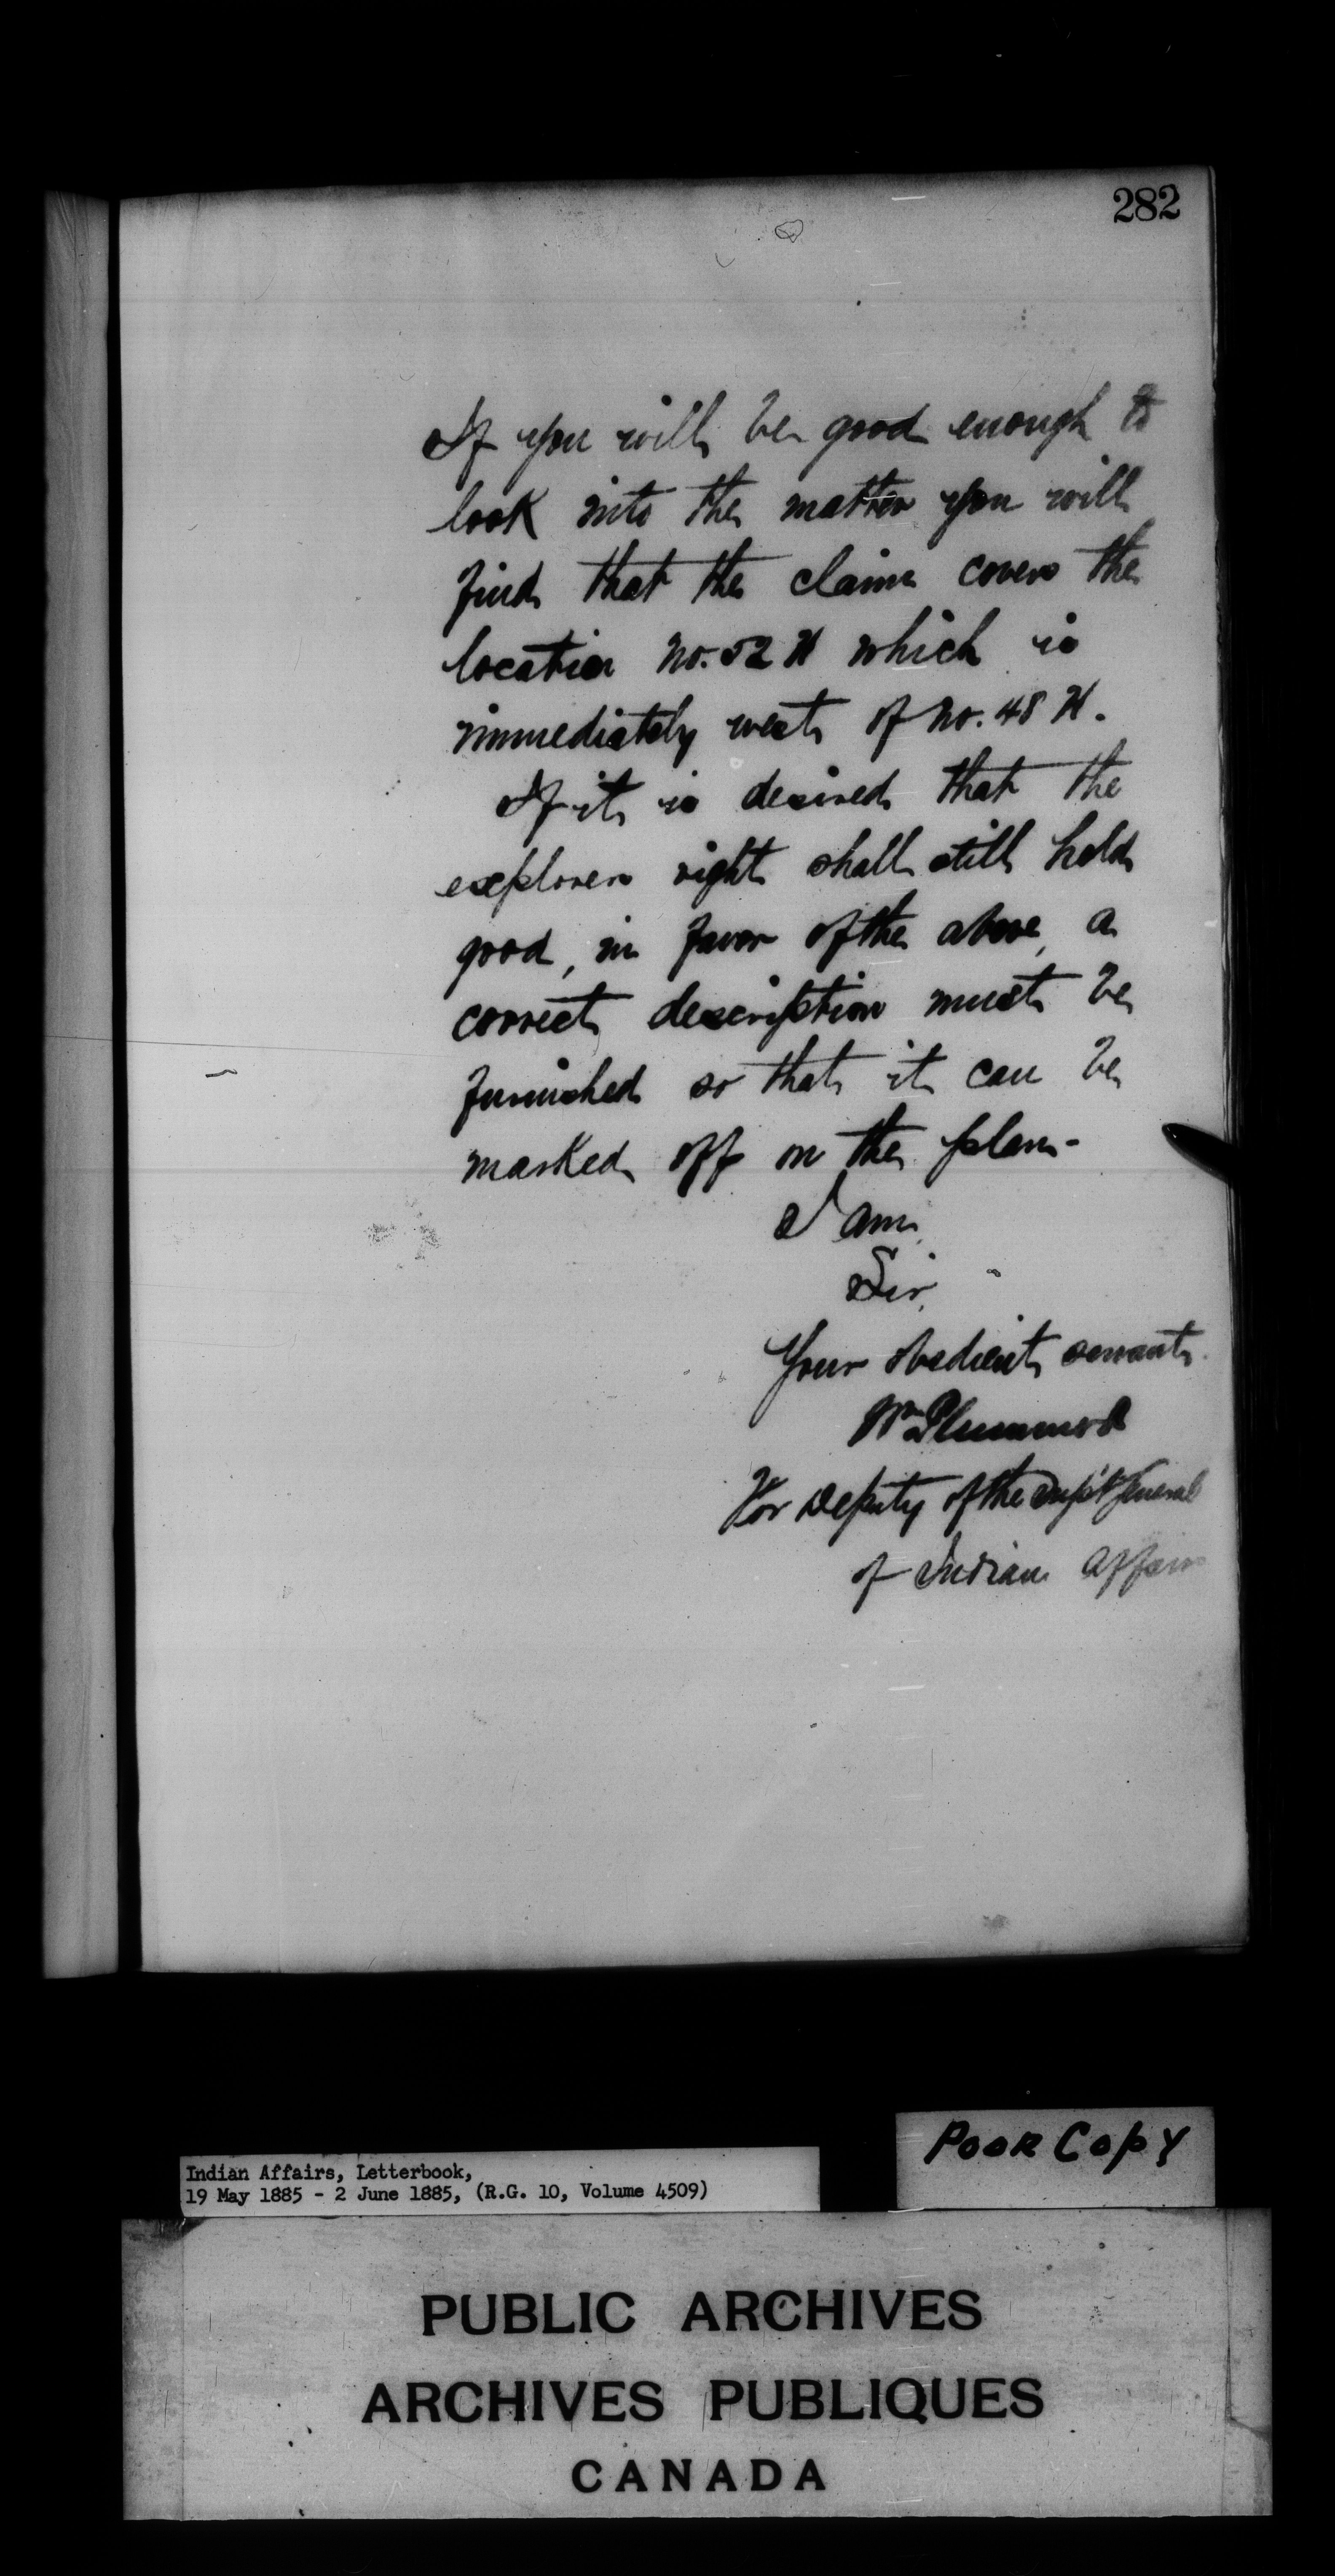 282
If you will be good enough to
look into the matter you will
find that the claim covers the
location No. 52 H which is
immediately west of No. 48 H.
If it is desired that the
explorers right shall still hold
good, in favor of the above, a
correct description must be
furnished so that it can be
marked off on the plan-
I am,
Sir,
Your obedient servant.
Wm Plummer
For Deputy of the Supt General
of Indian Affairs
Poor Copy
Indian Affairs, Letterbook,
19 May 1885 - 2 June 1885, (R.G. 10, Volume 4509)
PUBLIC ARCHIVES
ARCHIVES PUBLIQUES
CANADA